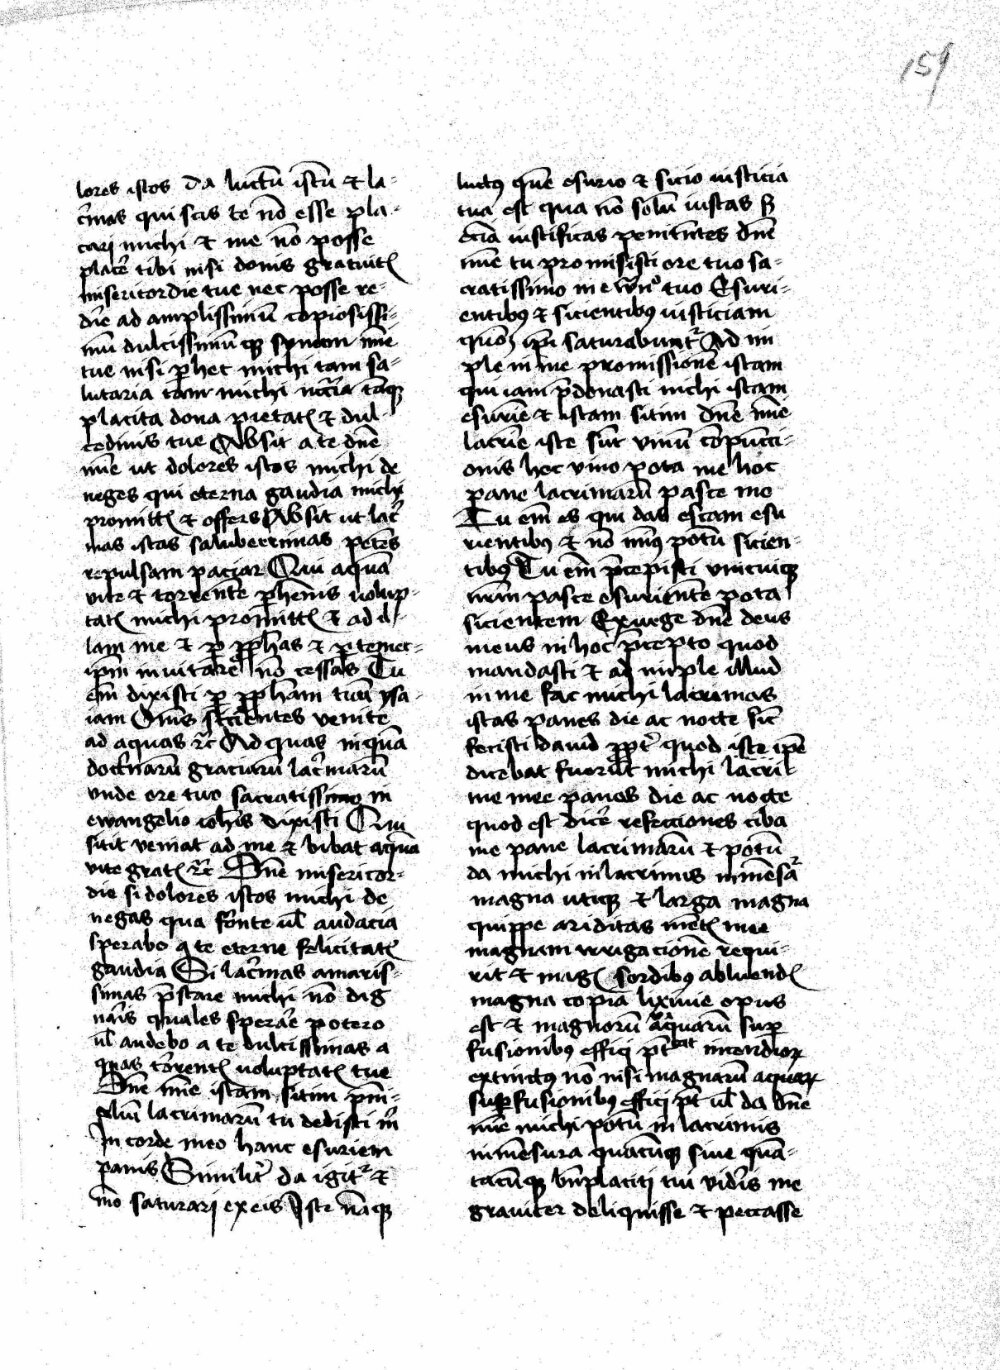 159
lores istos da luctū istū et la-
c̄mas qui scis te nō esse pla-
cari michi et me nō posse
placer̄ tibi nisi donis gratuit
misericordie tue nec posse re-
dir̄e ad amplissimū copiosissi-
mū dulcissimū qꝫ sinum mīe
tue nisi p hec michi tam sa-
lutaria tam michi nccīa tāqꝫ
placita dona pietat et dul-
cedinis tue Absit a te dn̄e
mīe ut dolores istos michi de
neges qui eterna gaudia michi
promitt et offers Absit ut lac̄
mas istas saluberrimas petēs
repulsam paciar Qui aquā
vite et torrentē phennis volup-
tat michi promitt et ad il-
lam me et p pphas et p temet-
ipm invitare nō cessas Tu
em̄ dixisti p pphām tuū ysa-
iam Oms sicientes venite
ad aquas ꝛc̄ Ad quas inquā
doct̄narū graciarū lac̄marū
vnde ore tuo sacratissimo in
ewangelio iohis dixisti Qui
sitit veniat ad me et bibat aquā
vite grat ꝛc̄ Dn̄e misericor-
die si dolores istos michi de
negas qua fronte ul audacia
sperabo a te eterne felicitat
gaudia Si lac̄mas amaris-
simas p̄stare michi nō dig
naris quales sperar̄e potero
ul audebo a te dulcissimas a
quas torrent voluptat tue
Dn̄e mīe istam sitim
lacrimarū tu dedisti m̄
In corde meo hanc esuriem
panis Similit̄ da igit et
mō saturari ex eis Iste nāqꝫ
luctꝰ quē esurio et sicio iusticia
tua est qua nō solū iustas sꝫ
eciā iustificas penitentes Dn̄e
mīe tu promisisti ore tuo sa-
cratissimo in e tuo Esuri-
entibꝰ et sicientibꝰ iusticiam
quō ipi saturabunt Ad im
ple in me promissionē istam
qui iam p̄donasti michi istam
esuriē et istam sitim Dn̄e mīe
lacrīe iste sūt vinū cōpuncti-
onis hoc vino pota me hoc
pane lacrimarū pasce me
Tu em̄ es qui das escam esu
rientibꝰ et nō minꝰ potū sicien-
tibꝰ Tu em̄ p̄cepisti vnicuiqꝫ
nr̄m pasce esurientē pota
sicientem Exurge dn̄e deus
meus in hoc p̄cepto quod
mandasti et ad imple illud
in me fac michi lacrimas
istas panes die ac nocte sic̄
fecisti david ppt̄ quod iste ipe
dicebat fuerūt michi lacri
me mee panes die ac nocte
quod est dice̅ refectiones ciba
me pane lacrimarū et potū
da michi in lacrimis īmēsā
magna utiqꝫ et larga magna
quippe ariditas met mee
magnam irrigacionē requi-
rit et mag sordibꝰ abluend
magna copia lixiuie opus
est et magnorū aquarū sup
fusionibꝰ effici pt incendiorꝝ
extinctus nō nisi magnarū aquarꝝ
superfusionibꝰ effici pt ul da dn̄e
mīe michi potū in lacrimis
in mēsura quacūqꝫ sive quā-
tacūqꝫ bn̄placiti tui videris me
graviter deliquisse et peccasse